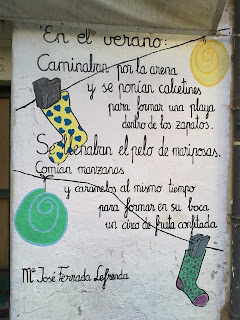 "En el verano:
Caminaban por la arena
y se ponían calcetines
para formar una playa
dentro de los zapatos.
Se llenaban el pelo de mariposas.
Comían manzanas
y caramelos al mismo tiempo
para formar en su boca
un circo de fruta confitada
Mª José Ferrada Lefrenda